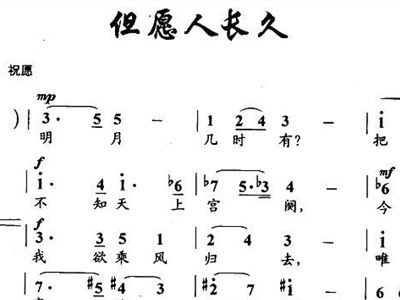 但愿人长久
祝愿
mp
) | 3· 5 5 – | 1 2 4 3 – | i
明 月 几 时 有? 把
f
i· 4 i· ♭6 | ♭7 5·♭3 4 – | ♭6 mf
不 知 天 上 宫 阙, 今
f
3· 3 3· 3 | 1 1 3 – | i
我 欲 乘 风 归 去, 唯